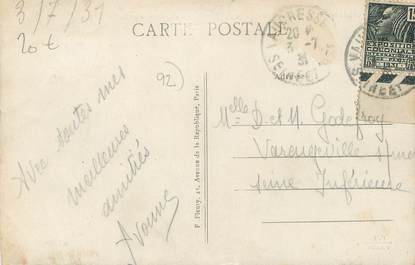 3/7/31
20€
CARTE POSTALE
92)
VAUCRESSON
20
3 -7
31
SEINE ET
Adresse
Melle D. et M. Godefroy
Varengeville s/mer
Seine Inférieure
Avec toutes mes
meilleures
amitiés
Yvonne
F. Fleury, 21, Avenue de la République, Paris